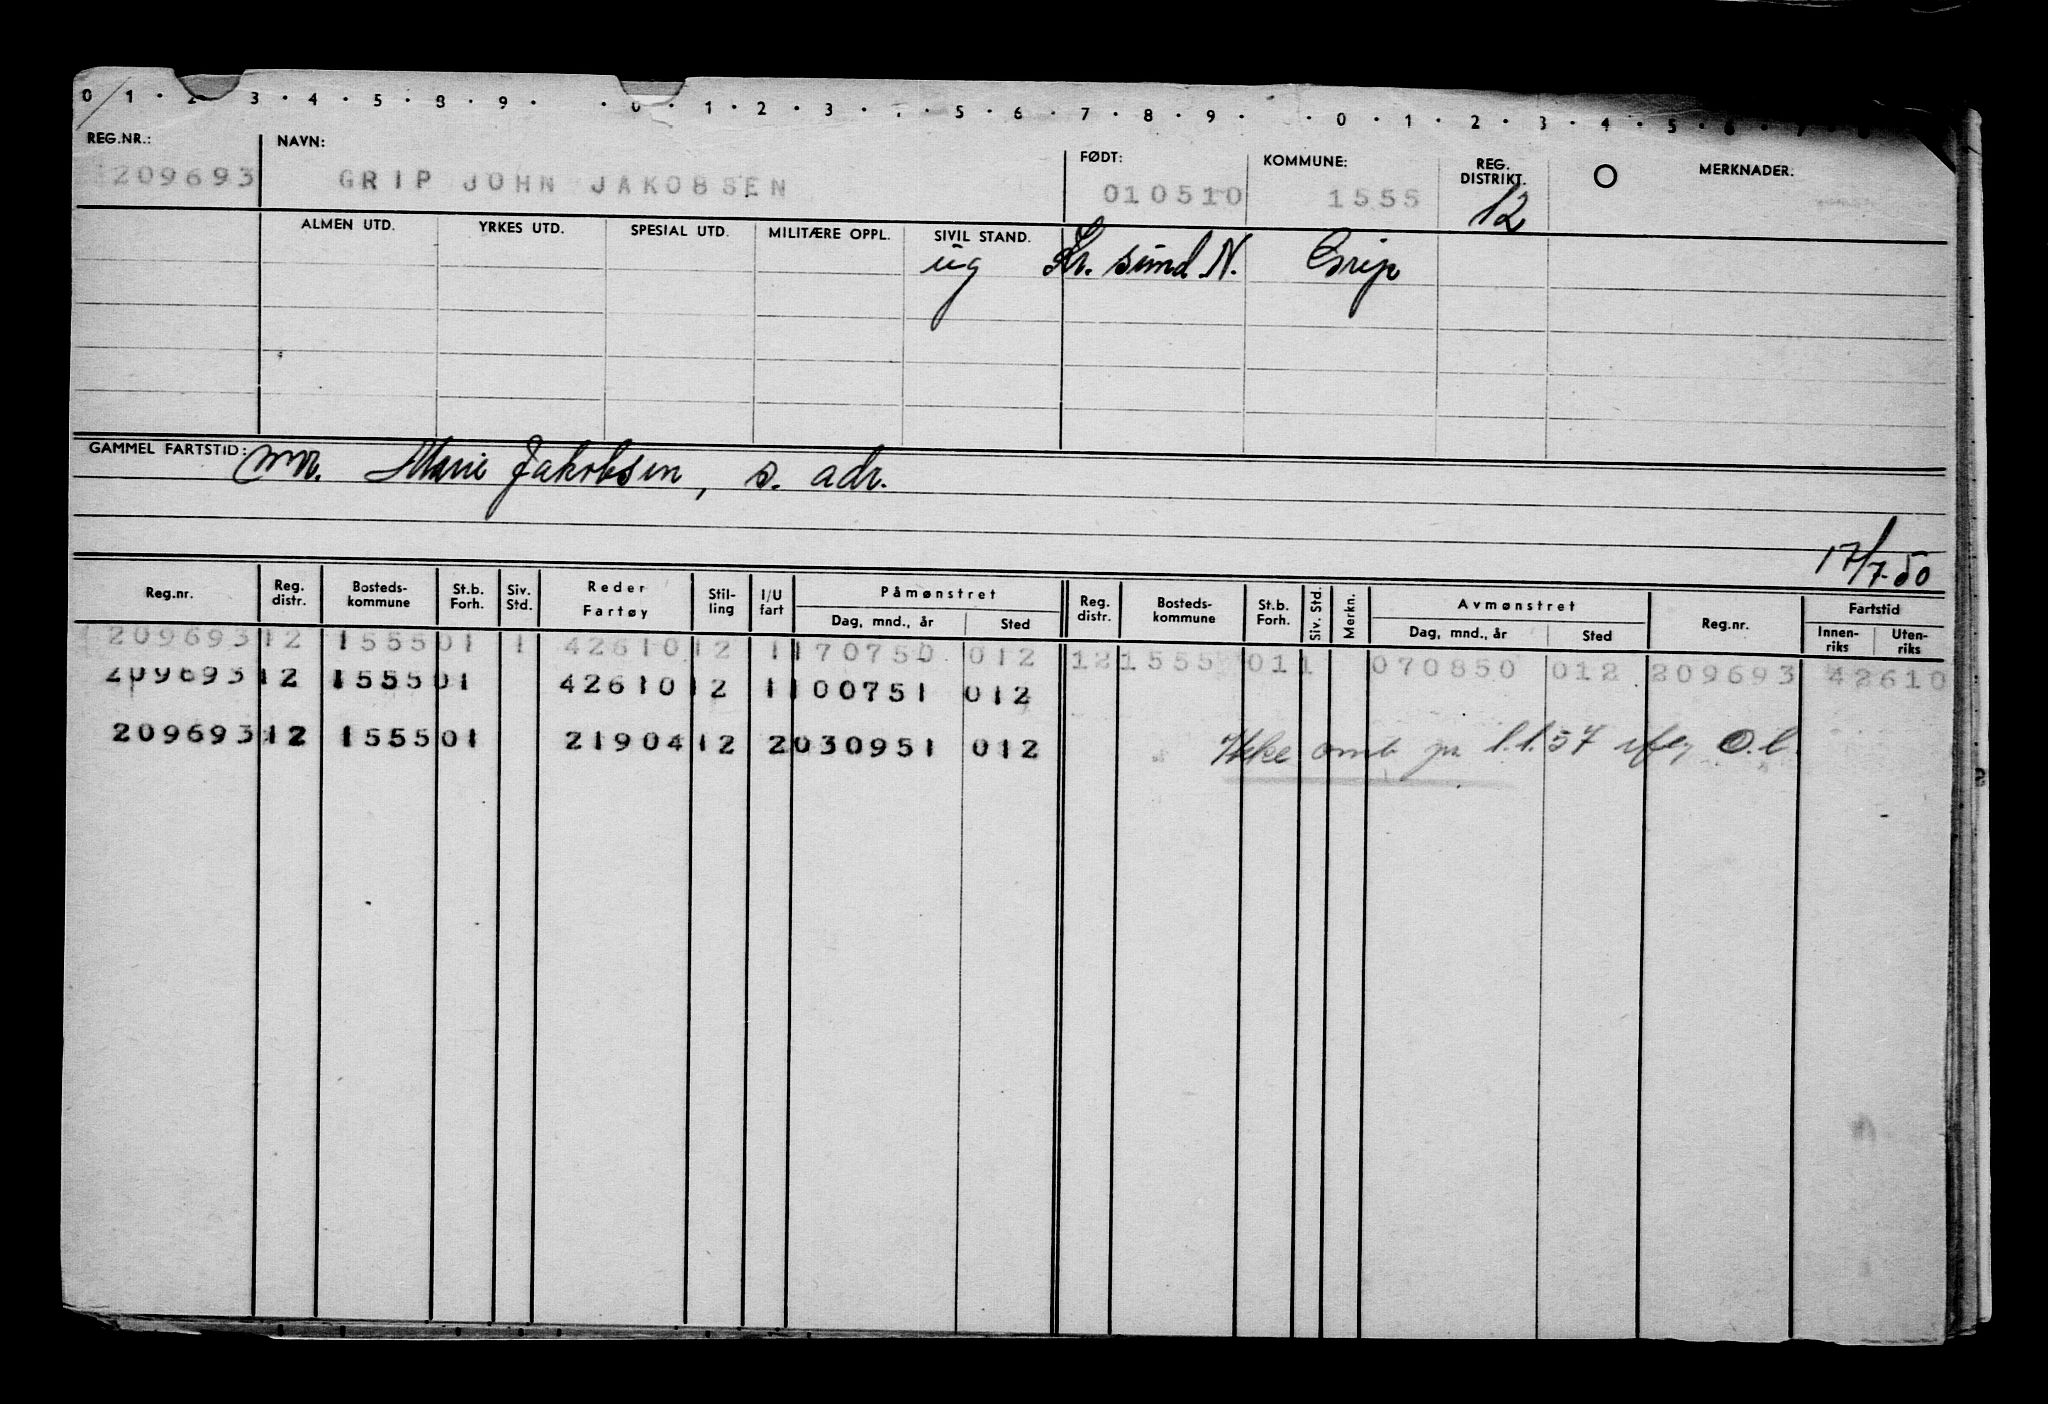 0 1 · 2 3 · 4 · 5 8 · 9 · · 0 · 1 · 2 · 3 · · 5 · 6 · 7 · 8 · 9 · · 0 · 1 · 2 · 3 · 4 · 5 · 6 · 7
REG.NR.: NAVN: FØDT: KOMMUNE: REG. DISTRIKT. O MERKNADER.
209693 GRIP JOHN JAKOBSEN 010510 1555 12
ALMEN UTD. YRKES UTD. SPESIAL UTD. MILITÆRE OPPL. SIVIL STAND.
ug Kr. sund N. Grip
GAMMEL FARTSTID: mor. Marie Jakobsen, s. adr.
17/7-50
Reg.nr. Reg. distr. Bosteds-kommune St.b. Forh. Siv. Std. Reder Fartøy Stil-ling I/U fart Påmønstret Dag, mnd., år Sted Reg. distr. Bosteds-kommune St.b. Forh. Siv. Std. Merkn. Avmønstret Dag, mnd., år Sted Reg.nr. Fartstid Innen-riks Uten-riks
209693 12 1555 01 1 42610 12 1 170750 012 12 1555 01 1 070850 012 209693 42610
209693 12 1555 01 42610 12 1 100751 012
209693 12 1555 01 21904 12 2 030951 012 Ikke omb pr 1.1.57 iflg O.l.